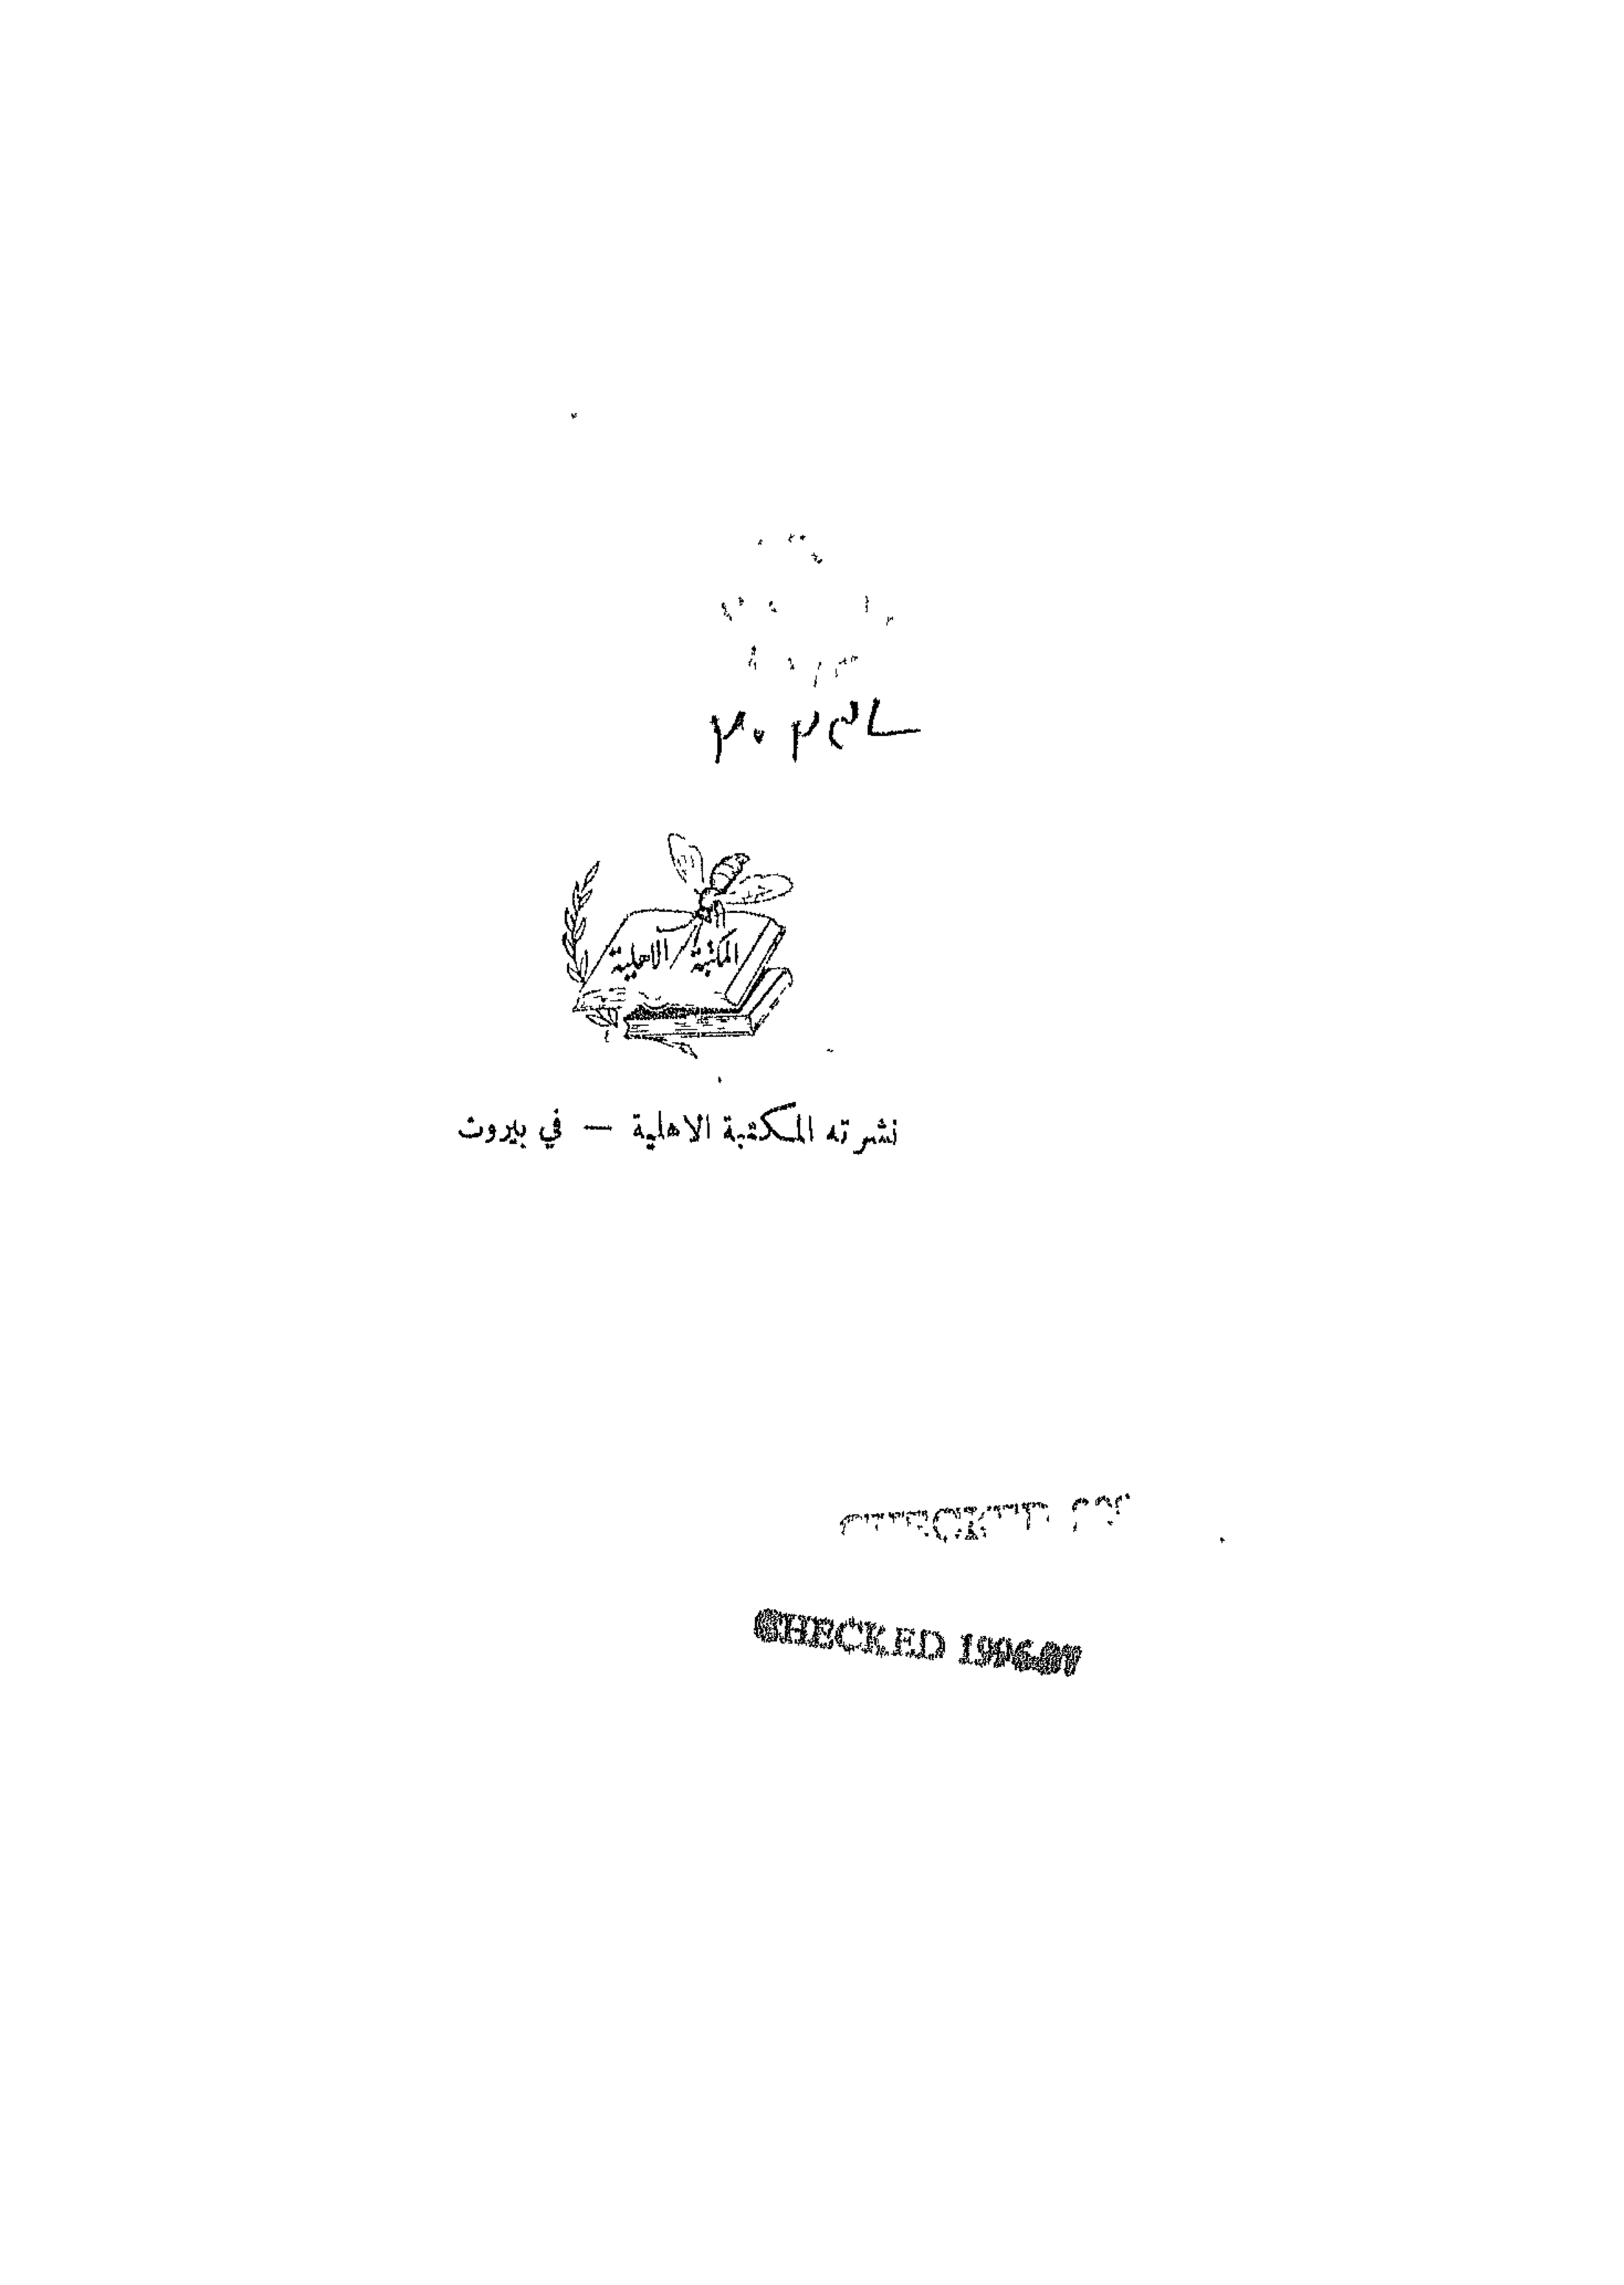 المكتبة الاهلية
نشرته المكتبة الاهلية — في بيروت
CHECKED 1996-97